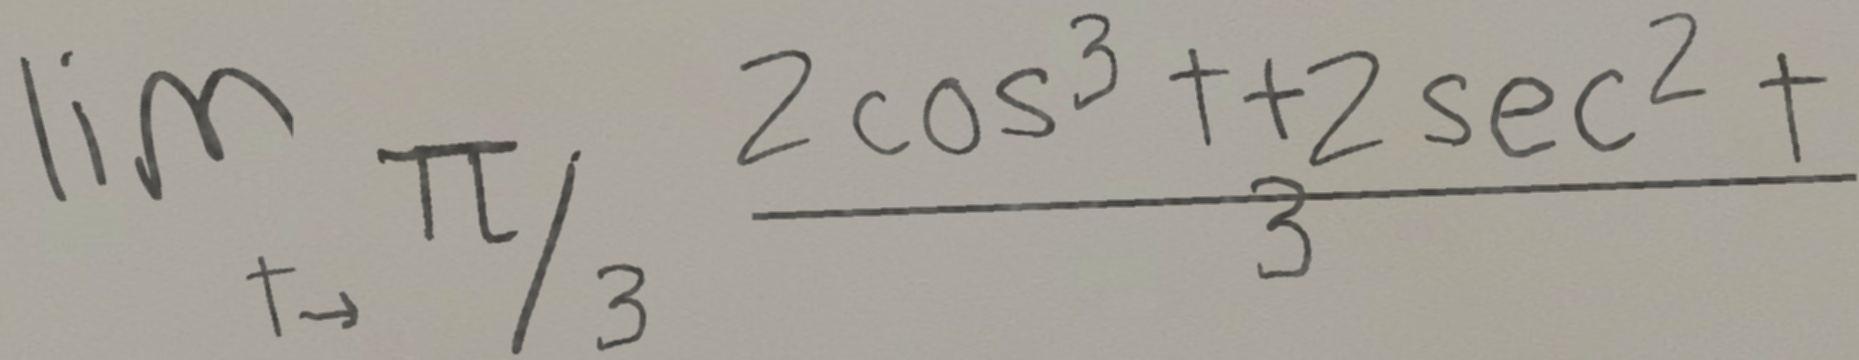 lim t→ π/3 2cos³ t+2sec² t
3